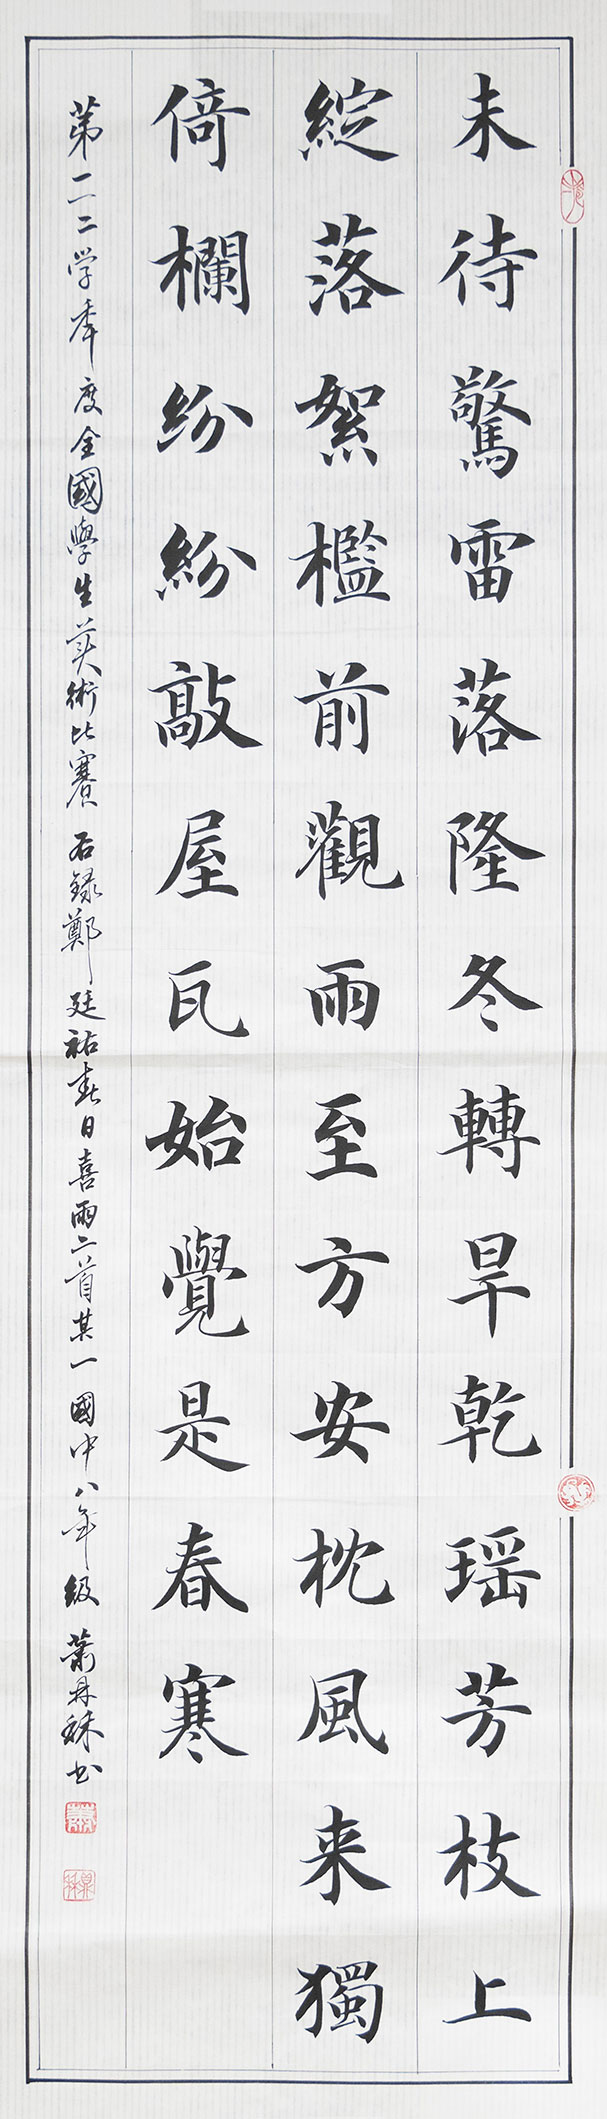 未待驚雷落隆冬轉旱乾瑶芳枝上
綻落絮檻前觀雨至方安枕風来獨
倚欄紛紛敲屋瓦始覺是春寒
第一一二学年度全國學生美術比賽 右録鄭廷祐春日喜雨二首其一 國中八年級 蕭鼎秝书